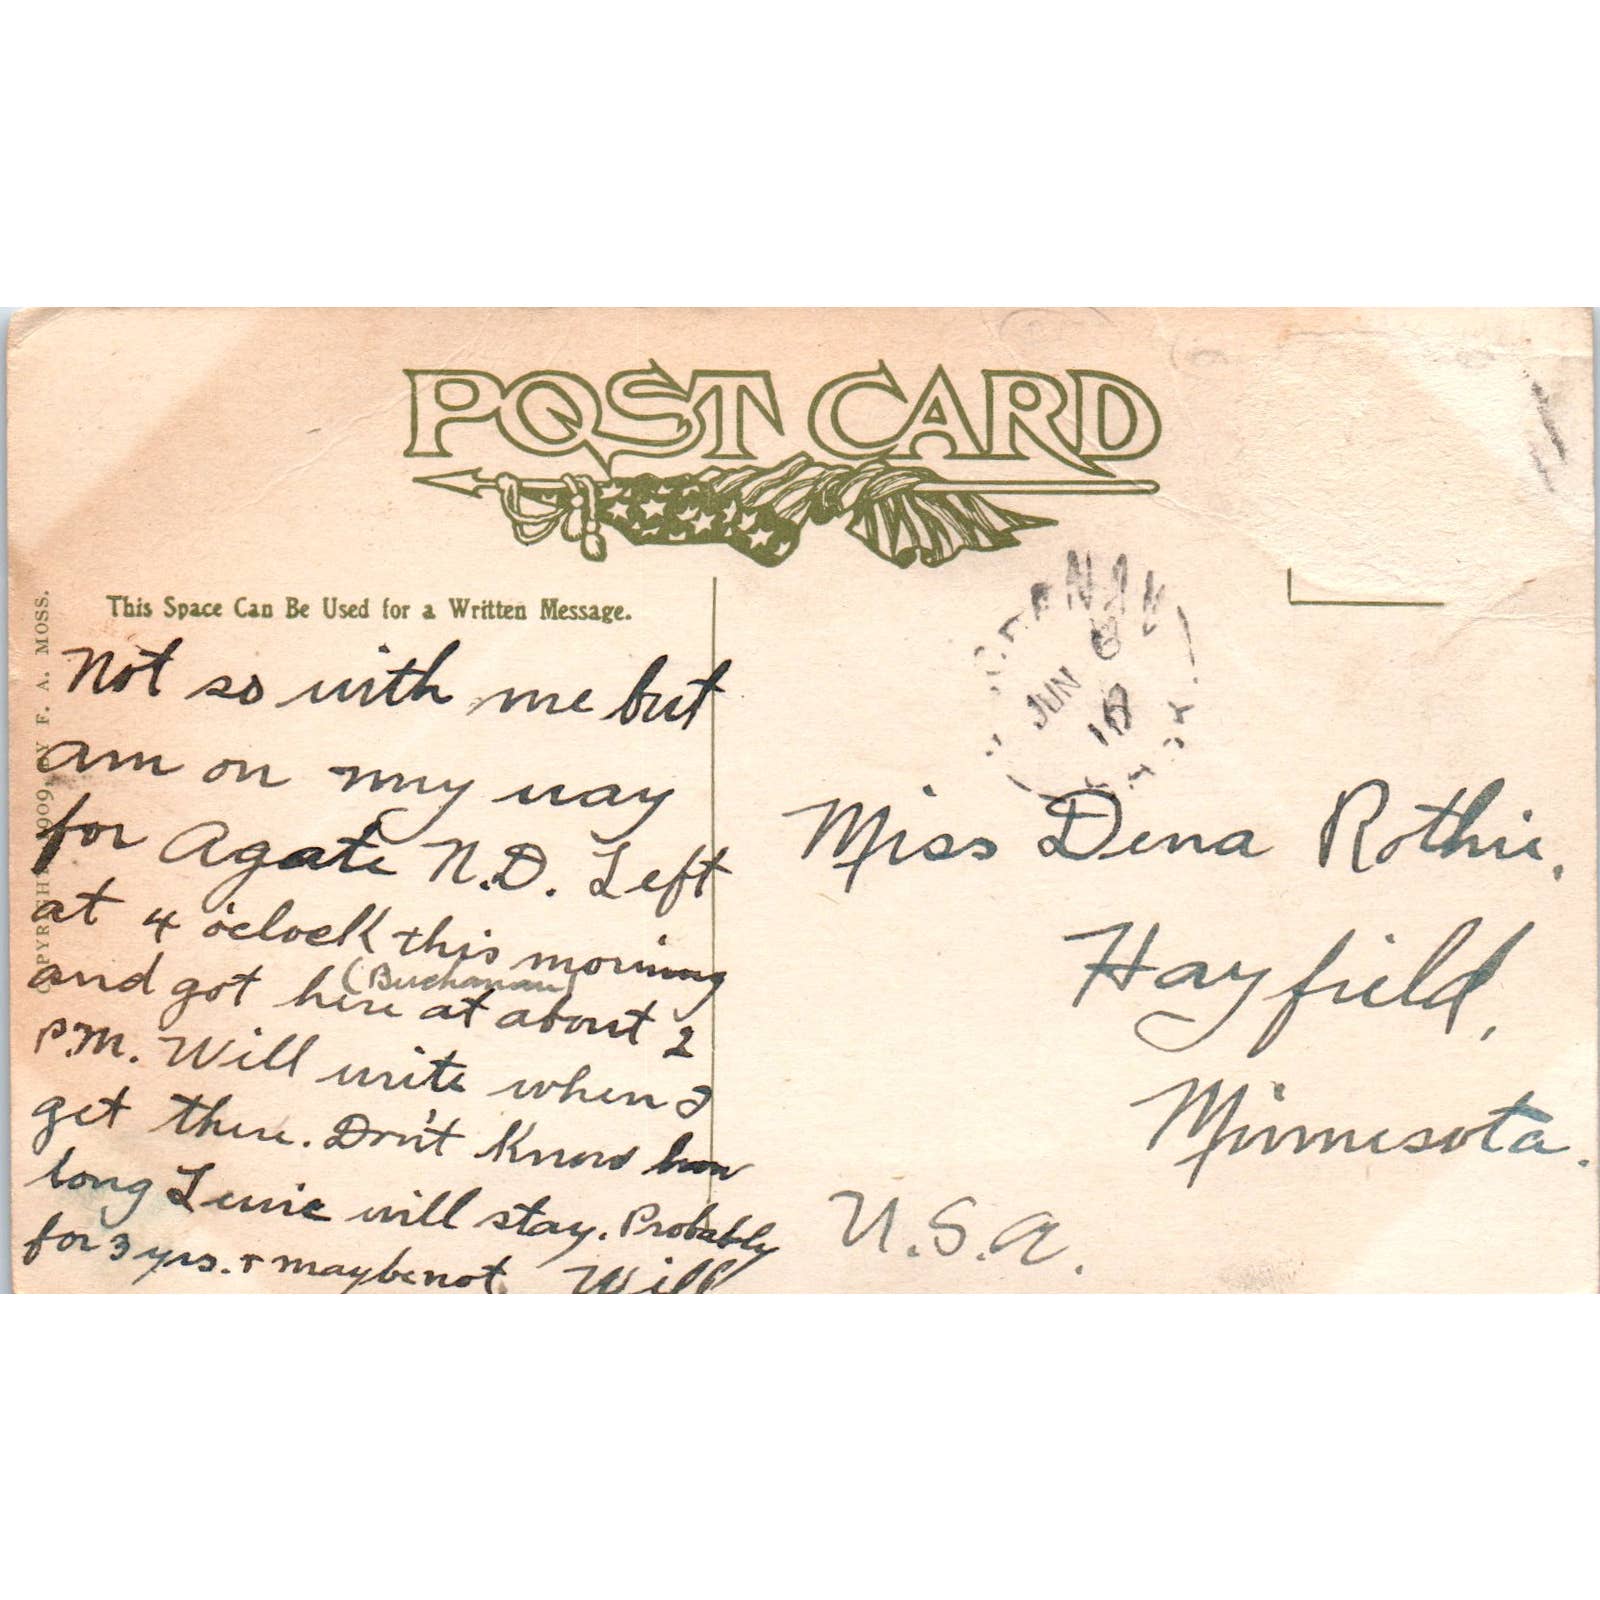 POST CARD
This Space Can Be Used for a Written Message.
Not so with me but
am on my way
for Agate N.D. Left
at 4 o'clock this morning
(Buchanan)
and got here at about 2
P.M. Will write when I
get there. Don't know how
long Lewie will stay. Probably
for 3 yrs. + maybe not. Will
JUN 6
Miss Dena Rothie,
Hayfield,
Minnesota.
U.S.A.
1909, F. A. MOSS.